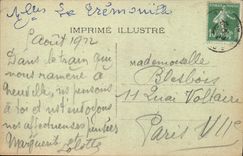 IMPRIMÉ ILLUSTRÉ
1 août 1922
Dans le train qui
nous ramène à
nous pensons
à toi et t'envoyons
nos affectueuses pensées
Marguerite
Mademoiselle
Blesbois
11 Quai Voltaire
Paris VIIe